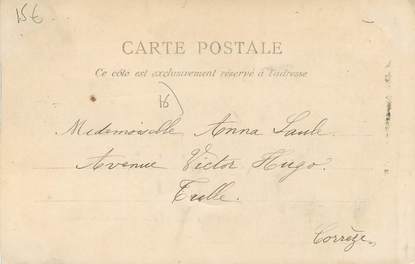 15€
CARTE POSTALE
Ce côté est exclusivement réservé à l'adresse
16
Mademoiselle Anna Saule.
Avenue Victor Hugo.
Tulle.
Corrèze.